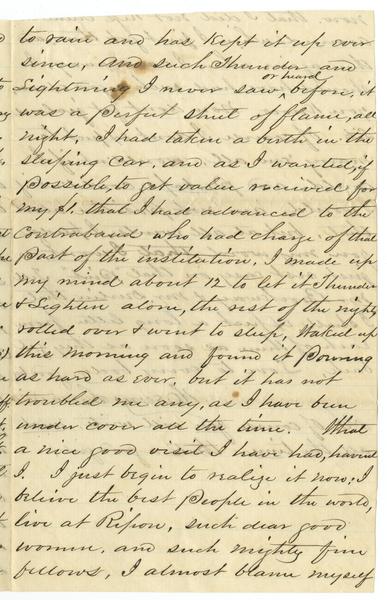 to rain and has kept it up ever
since, and such Thunder and
or heard
Lightning I never saw, before, it
was a perfect sheet of flame, all
night. I had taken a birth in the
sleeping car, and as I wanted, if
possible, to get value received for
my $1. that I had advanced to the
Contraband who had charge of that
part of the institution, I made up
my mind about 12 to let it Thunder
& Lighten alone, the rest of the night,
rolled over & went to sleep. Waked up
this morning and found it Pouring
as hard as ever, but it has not
troubled me any, as I have been
under cover all the time. What
a nice good visit I have had, havent
I. I just begin to realize it now, I
believe the best People in the world,
live at Ripon, such dear good
women, and such mighty fine
fellows, I almost blame myself